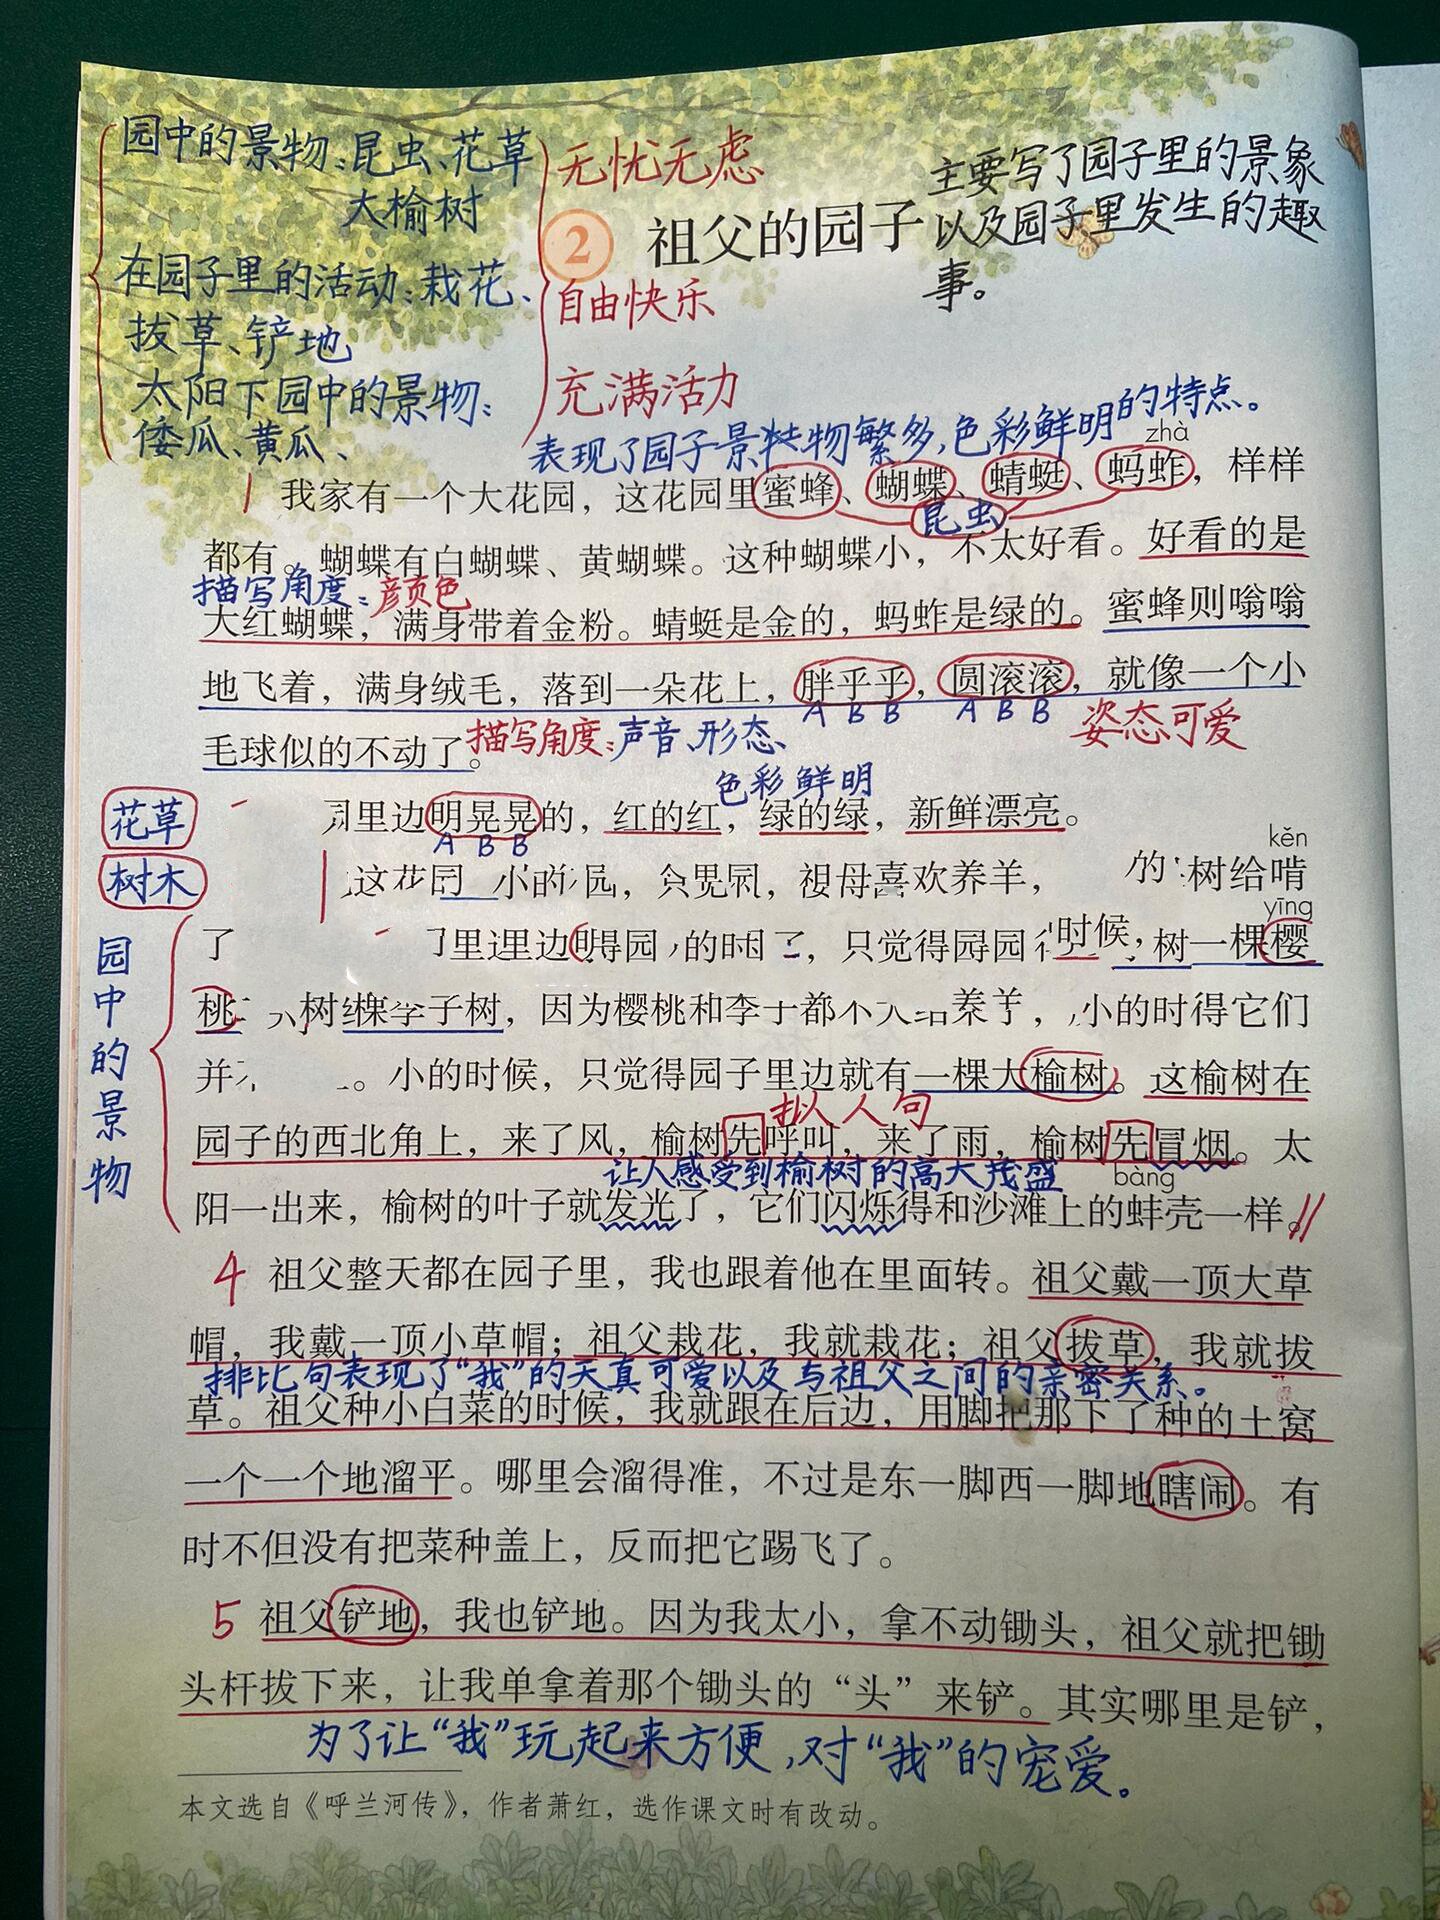 园中的景物：昆虫、花草
大榆树
在园子里的活动：栽花、
拔草、铲地
太阳下园中的景物：
倭瓜、黄瓜、
无忧无虑
自由快乐
充满活力
2 祖父的园子
主要写了园子里的景象
以及园子里发生的趣
事。
表现了园子景物繁多，色彩鲜明的特点。
zhà
1 我家有一个大花园，这花园里蜜蜂、蝴蝶、蜻蜓、蚂蚱，样样
昆虫
都有。蝴蝶有白蝴蝶、黄蝴蝶。这种蝴蝶小，不太好看。好看的是
描写角度：颜色
大红蝴蝶，满身带着金粉。蜻蜓是金的，蚂蚱是绿的。蜜蜂则嗡嗡
地飞着，满身绒毛，落到一朵花上，胖乎乎，圆滚滚，就像一个小
A B B A B B
姿态可爱
毛球似的不动了。
描写角度：声音、形态、
色彩鲜明
花草
里边明晃晃的，红的红，绿的绿，新鲜漂亮。
A B B
kěn
树木
这花园 小的 园，祖母喜欢养羊， 的 树给啃
yīng
了 里边 得园 的 了，只觉得 园 时候， 树一棵樱
桃 树 棵李子树，因为樱桃和李子都不大结 ， 小的时 得它们
并 。小的时候，只觉得园子里边就有一棵大榆树。这榆树在
拟人句
园子的西北角上，来了风，榆树先呼叫，来了雨，榆树先冒烟。太
让人感受到榆树的高大茂盛
bàng
阳一出来，榆树的叶子就发光了，它们闪烁得和沙滩上的蚌壳一样。
园中的景物
4 祖父整天都在园子里，我也跟着他在里面转。祖父戴一顶大草
帽，我戴一顶小草帽；祖父栽花，我就栽花；祖父拔草，我就拔
排比句表现了“我”的天真可爱以及与祖父之间的亲密关系。
草。祖父种小白菜的时候，我就跟在后边，用脚把那下了种的土窝
一个一个地溜平。哪里会溜得准，不过是东一脚西一脚地瞎闹。有
时不但没有把菜种盖上，反而把它踢飞了。
5 祖父铲地，我也铲地。因为我太小，拿不动锄头，祖父就把锄
头杆拔下来，让我单拿着那个锄头的“头”来铲。其实哪里是铲，
为了让“我”玩起来方便，对“我”的宠爱。
本文选自《呼兰河传》，作者萧红，选作课文时有改动。